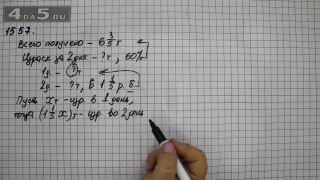 4АБ.RU
1557.
Всего получено – 6 3/5 т
Израсх за 2 дня – ? т, 60%
1д. – ? т
2д. – ? т, в 1 1/5 р. б
Пусть x т – изр. в 1 день,
тогда (1 1/5 x) т – изр. во 2 день